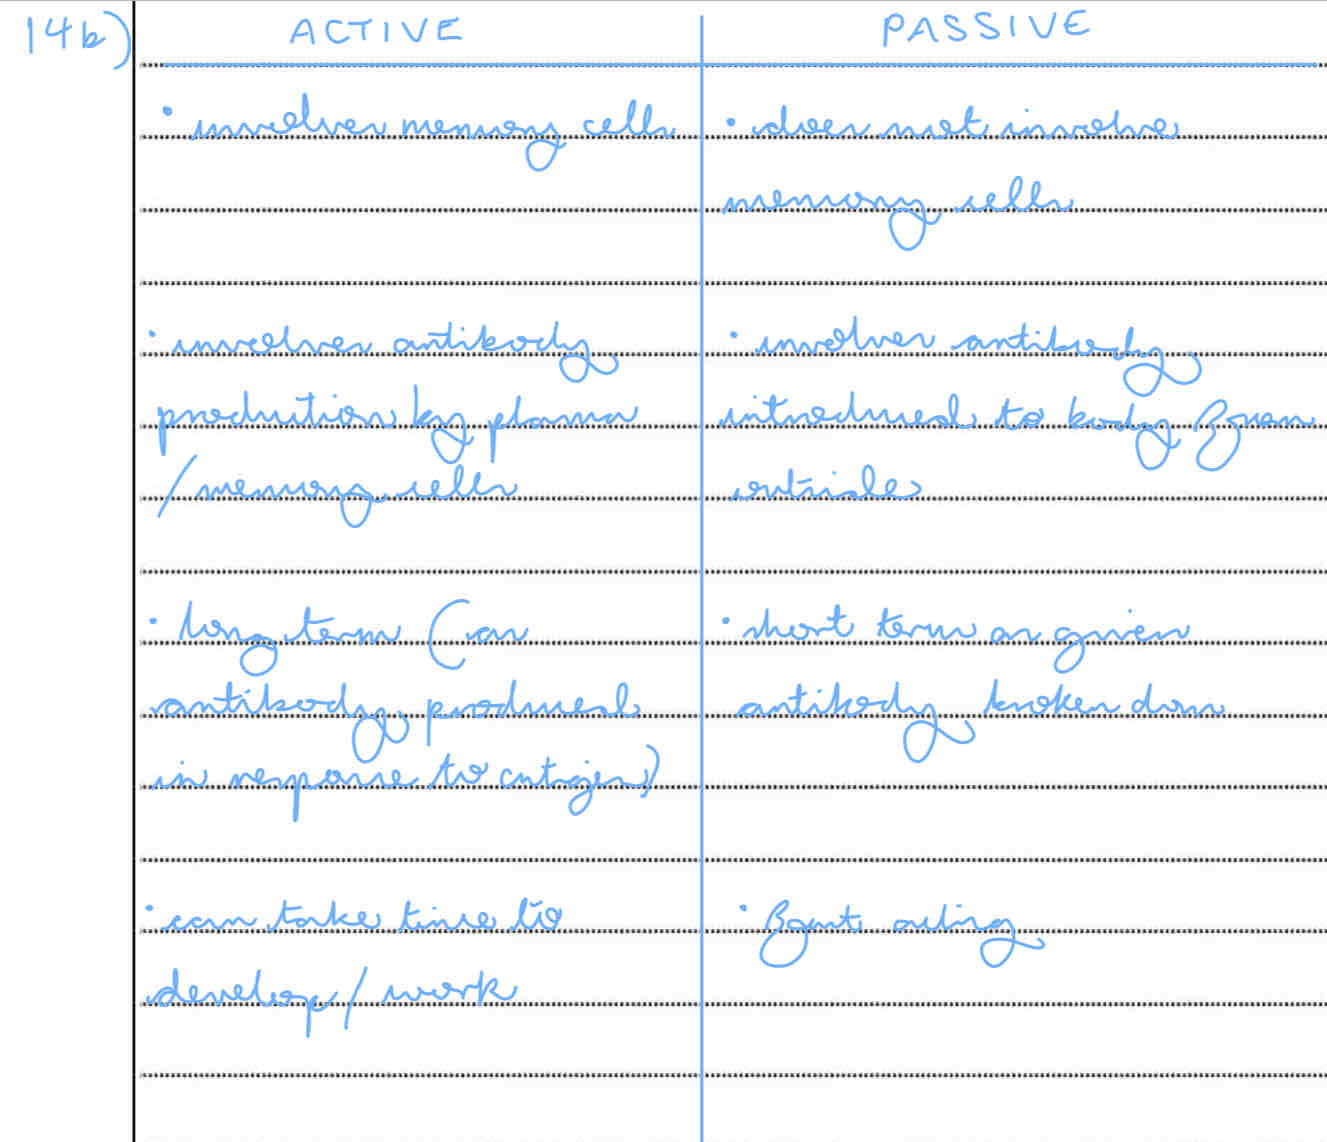 14b)
ACTIVE
• involves memory cells
• involves antibody
production by plasma
/memory cells
• long term (as
antibody produced
in response to antigen)
• can take time to
develop/work
PASSIVE
• does not involve
memory cells
• involves antibody
introduced to body from
outside
• short term as given
antibody broken down
• fast acting